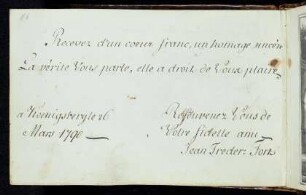 Recevez d'un coeur franc, un homage sincère
La vérité Vous parle, elle a droit de Vous plaire.
à Koenigsberg le 26
Mars 1790
Ressouvenez Vous de
Votre fidelle ami
Jean Freder: